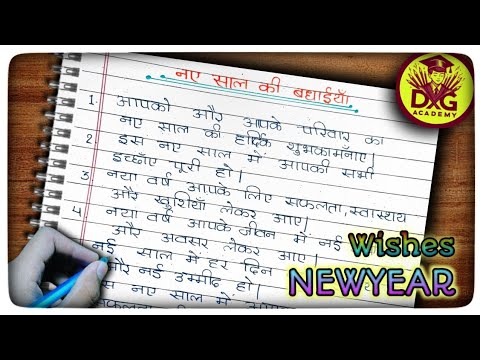 नए साल की बधाईयाँ
1. आपको और आपके परिवार को
नए साल की हार्दिक शुभकामनाएँ।
2 इस नए साल में आपकी सभी
इच्छाएँ पूरी हो।
3 नया वर्ष आपके लिए सफलता, स्वास्थय
और खुशियाँ लेकर आए।
4 नया वर्ष आपके जीवन में नई
और अवसर लेकर आए।
नई साल में हर दिन
और नई उम्मीद हो।
इस नए साल में
DXG
ACADEMY
Wishes
NEWYEAR